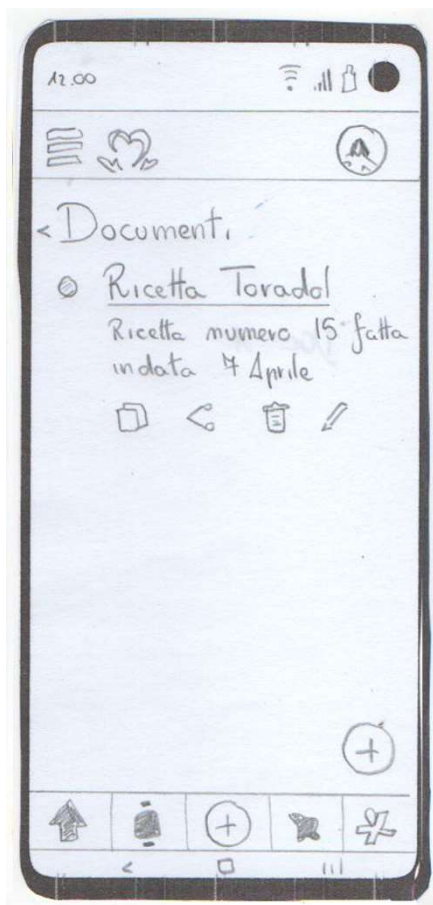 12.00
< Documenti
Ricetta Toradol
Ricetta numero 15 fatta
in data 7 Aprile